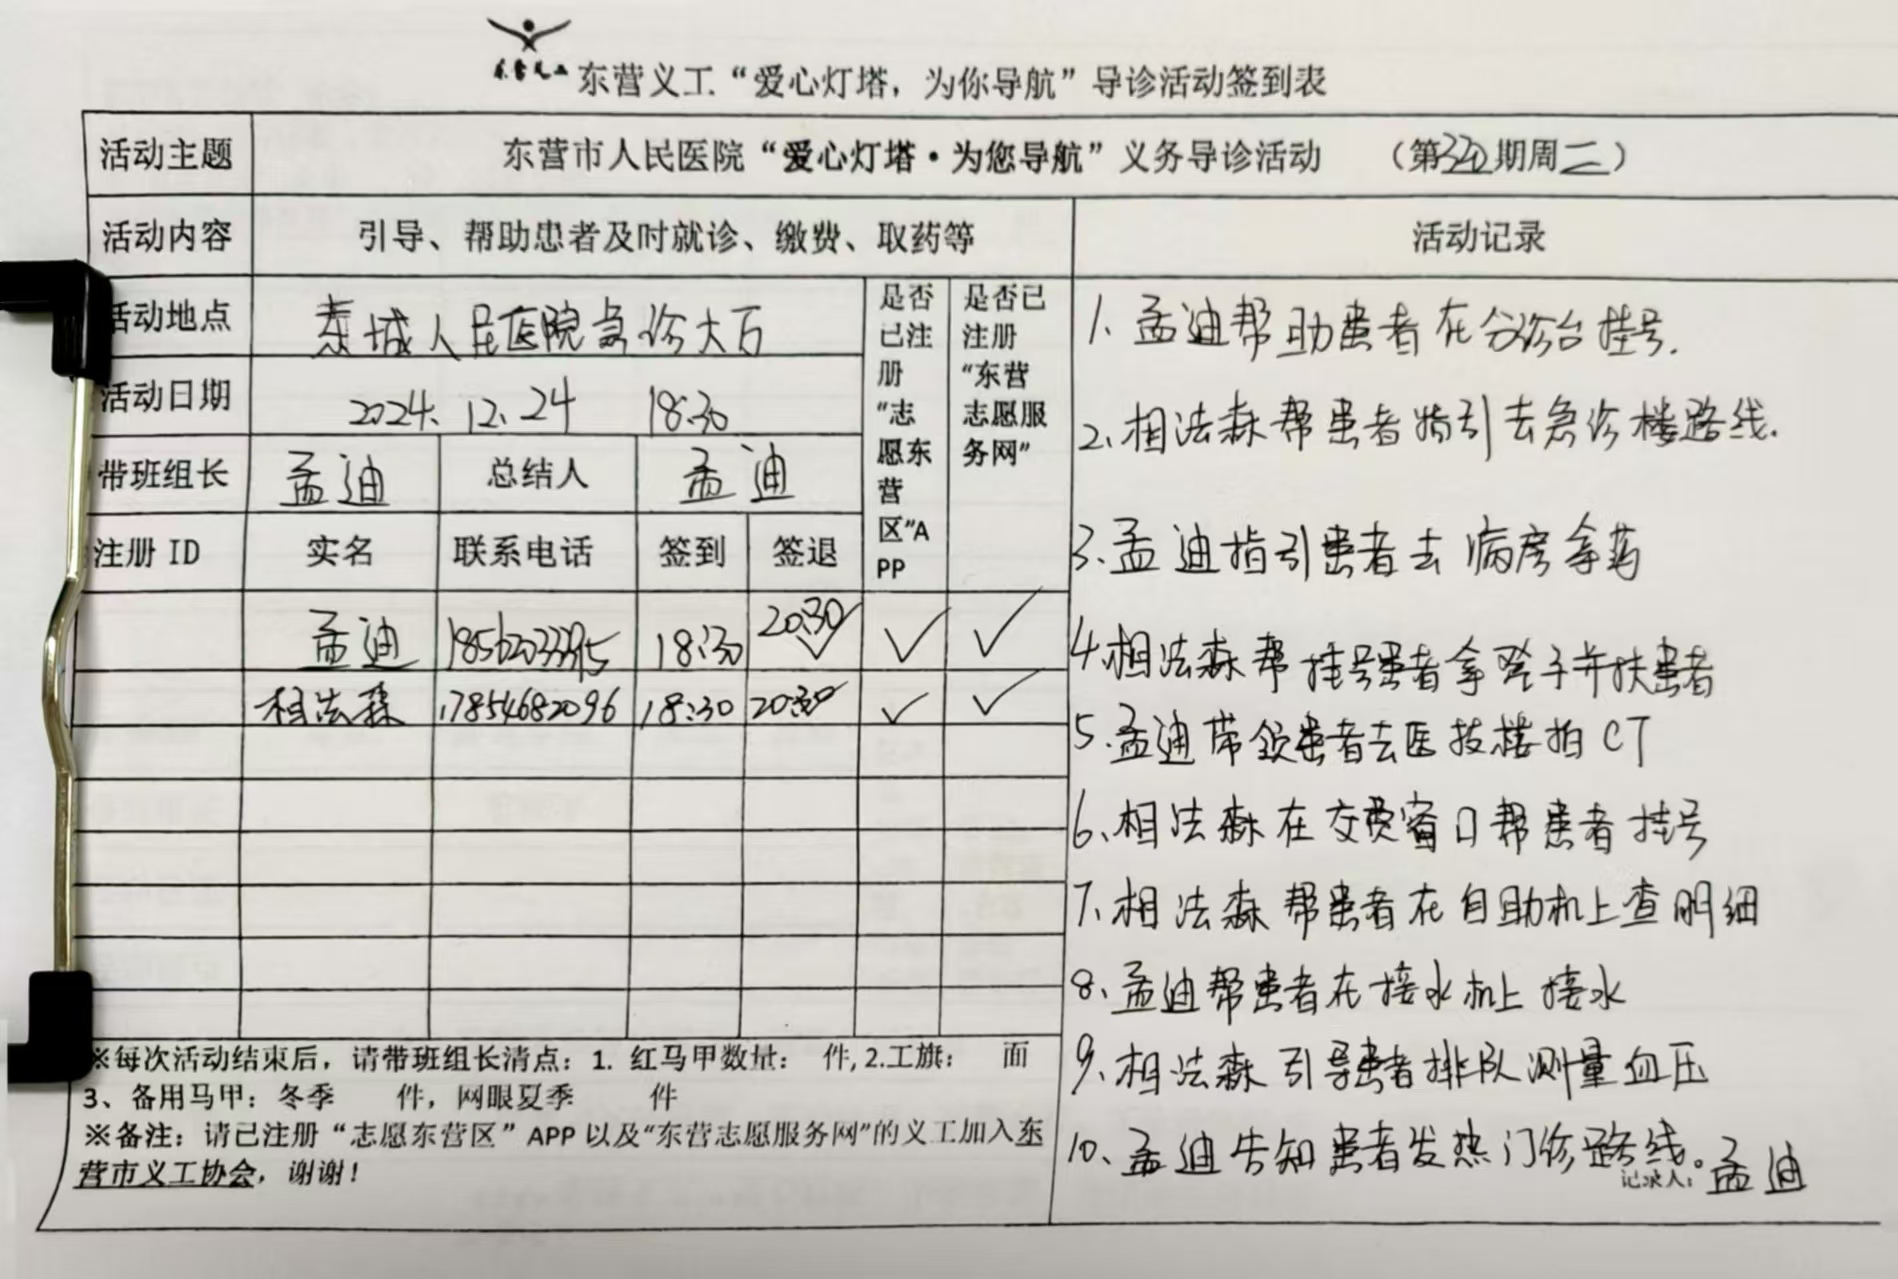 东营义工
东营义工“爱心灯塔，为你导航”导诊活动签到表
活动主题
东营市人民医院“爱心灯塔·为您导航”义务导诊活动 （第320期周二）
活动内容
引导、帮助患者及时就诊、缴费、取药等
活动记录
活动地点
东城人民医院急诊大厅
是否已注册“志愿东营区”APP
是否已注册“东营志愿服务网”
活动日期
2024.12.24 18:30
带班组长 孟迪 总结人 孟迪
注册 ID 实名 联系电话 签到 签退
孟迪 18:30 20:30 ✓ ✓
相法森 17854682096 18:30 20:30 ✓ ✓
1. 孟迪帮助患者在分诊台挂号.
2. 相法森帮患者指引去急诊楼路线.
3. 孟迪指引患者去病房拿药
4. 相法森帮挂号患者拿 子并扶患者
5. 孟迪带领患者去医技楼拍CT
6、相法森在交费窗口帮患者挂号
7、相法森帮患者在自助机上查明细
8、孟迪帮患者在接水机上接水
9、相法森引导患者排队测量血压
10、孟迪告知患者发热门诊路线。
记录人：孟迪
※每次活动结束后，请带班组长清点：1. 红马甲数量： 件, 2.工旗： 面
3、备用马甲：冬季 件，网眼夏季 件
※备注：请已注册“志愿东营区”APP 以及“东营志愿服务网”的义工加入东
营市义工协会，谢谢！